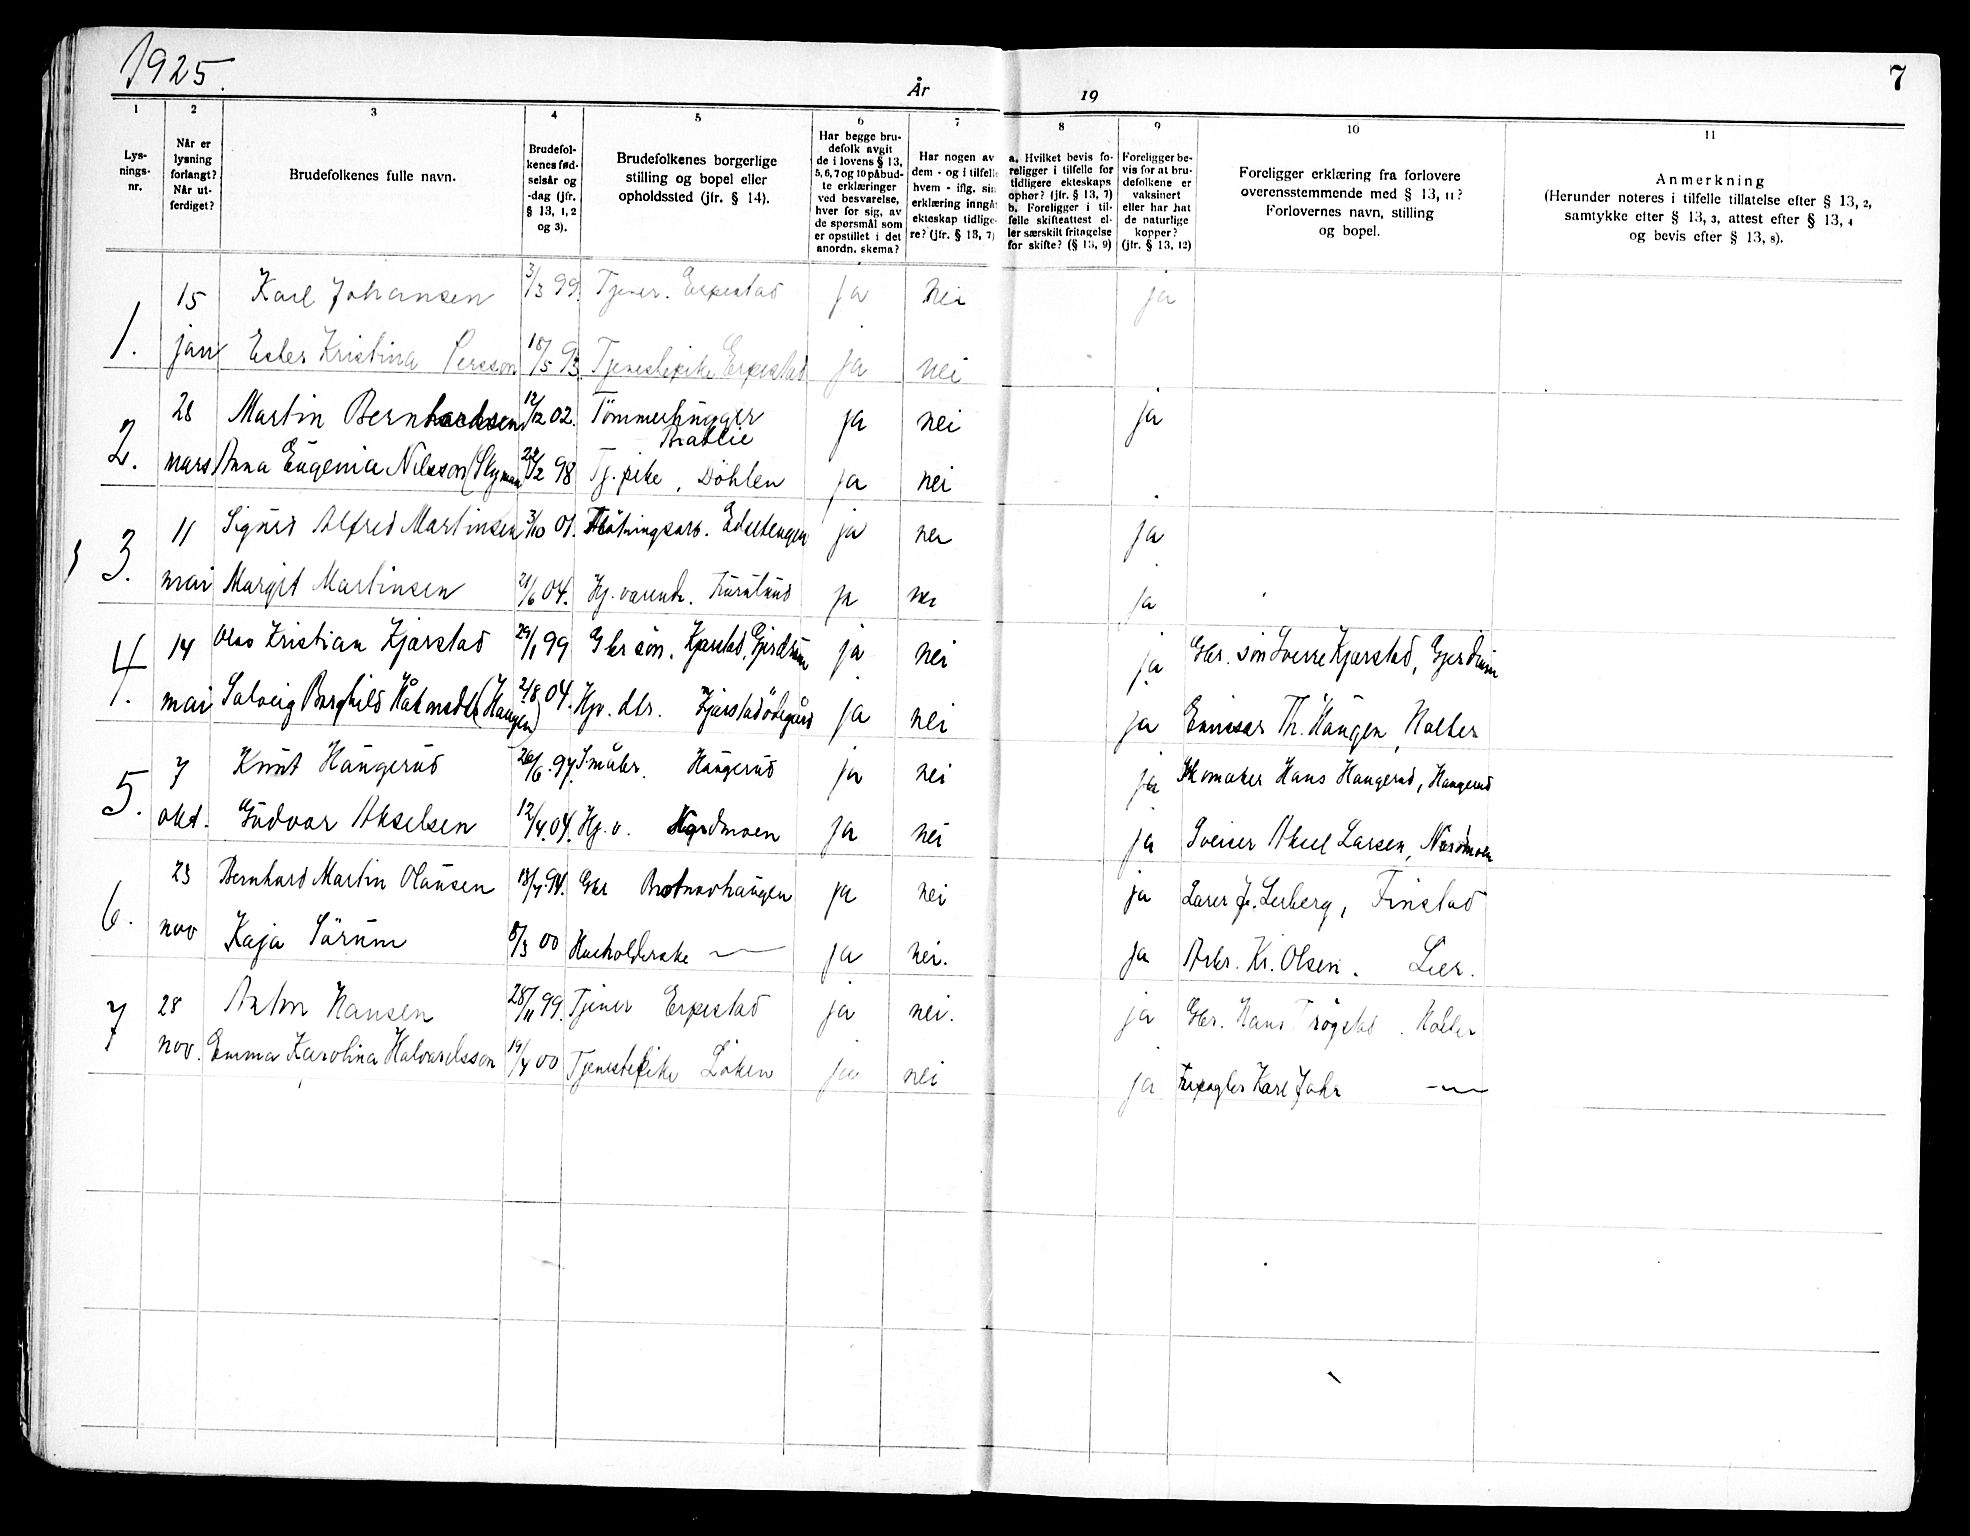 1925.
År
19
7
1
2
3
4
5
6
7
8
9
10
11
Lys-
nings-
nr.
Når er
lysning
forlangt?
Når ut-
ferdiget?
Brudefolkenes fulle navn.
Brudefol-
kenes fød-
selsår og
-dag (jfr.
§ 13, 1, 2
og 3).
Brudefolkenes borgerlige
stilling og bopel eller
opholdssted (jfr. § 14).
Har begge bru-
defolk avgit
de i lovens § 13,
5, 6, 7 og 10 påbud-
te erklæringer
ved besvarelse,
hver for sig, av
de spørsmål som
er opstillet i det
anordn. skema?
Har nogen av
dem - og i tilfelle
hvem - iflg. sin
erklæring inngåt
ekteskap tidlige-
re? (jfr. § 13, 7)
a. Hvilket bevis fo-
religger i tilfelle for
tidligere ekteskaps
ophør? (jfr. § 13, 7)
b. Foreligger i til-
felle skifteattest el-
ler særskilt fritagelse
for skifte? (§ 13, 9)
Foreligger be-
vis for at bru-
defolkene er
vaksinert
eller har hat
de naturlige
kopper?
(jfr. § 13, 12)
Foreligger erklæring fra forlovere
overensstemmende med § 13, 11?
Forlovernes navn, stilling
og bopel.
Anmerkning
(Herunder noteres i tilfelle tillatelse efter § 13, 2,
samtykke efter § 13, 3, attest efter § 13, 4
og bevis efter § 13, 8).
1. 15 Karl Johansen 3/3 99. Tjener. Erpestad ja nei ja
jan Ester Kristina Persson 18/5 93. Tjenestepike Erpestad ja nei
2. 28 Martin Bernhardsen 12/12 02. Tömmerhugger ja nei ja
Bratlie
mars Anna Eugenia Nilsson 22/2 98 Tj. pike, Döhlen ja nei
3. 11 Sigurd Alfred Martinsen 3/10 01. Flötningsarb. ja nei ja
mai Margit Martinsen 21/6 04. Hj. varende. Furulund ja nei ja
4. 14 Olav Kristian Kjærstad 29/1 99 Gbr sön. Kjærstad, Gjerdrum ja nei ja Gbr. sön Sverre Kjærstad, Gjerdrum
mai Solveig Borghild (Haugen) 2/8 04. Hjv. dtr. Kjærstadödegård ja nei ja Th. Haugen, Holter
5. 7 Knut Haugerud 26/6. 97. Småbr. Haugerud ja nei ja Skomaker Hans Haugerud, Haugerud
okt. Gudvor Akselsen 12/4. 04. Hj. v. Nordmoen ja nei ja Sveiser Aksel Larsen, Nordmoen
6. 23 Bernhard Martin Olausen 94. Gbr ja nei ja Finstad
nov Kaja Sörum 8/3 00 Husholderske — ja nei. ja Arbr. Kr. Olsen. Lier.
7 28 Anton Hansen 28/11 99. Tjener Erpestad ja nei. ja Gbr. Hans Trögstad. Holter
nov. Emma Karolina Halvardsson 19/4 00 Tjenestepike Löken ja nei ja Karl Johr —